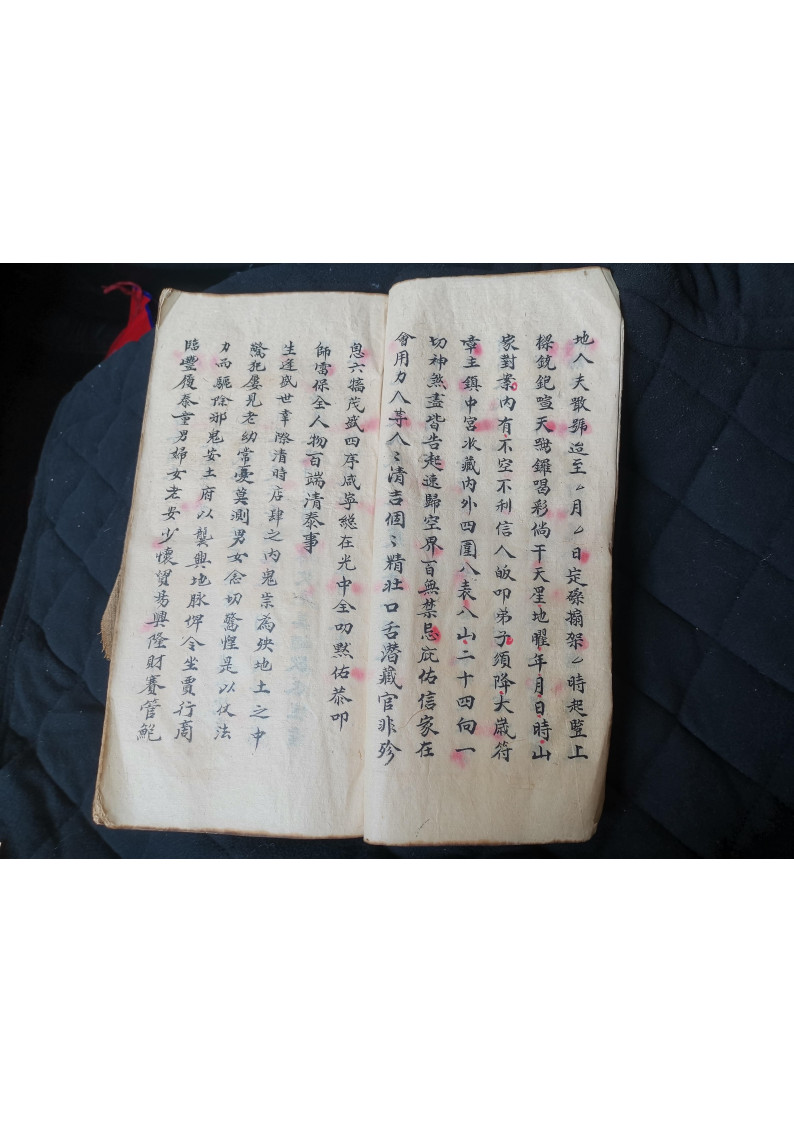 地人夫散號迨至厶月厶日定磉搧架厶時起豎上
樑銃鈀喧天鼓鑼喝彩倘干天星地曜年月日時山
家對案內有不空不利信人皈叩弟子頒降大歲符
章主鎮中宮收藏內外四圍八表八山二十四向一
切神煞盡皆告起速歸空界百無禁忌庇佑信家在
會用力八等人〻清吉個〻精壯口舌潛藏官非殄
息六犒茂盛四序咸寧總在光中全叨默佑恭叩
師雷保全人物百端清泰事
生逢盛世幸際清時店肆之內鬼祟為殃地土之中
驚犯屢見老幼常憂莫測男女念切驚惶是以仗法
力而驅除邪鬼安土府以龔興地脉俾令坐賈行商
臨豐履泰童男婦女老安少懷貿易興隆財賽管鮑